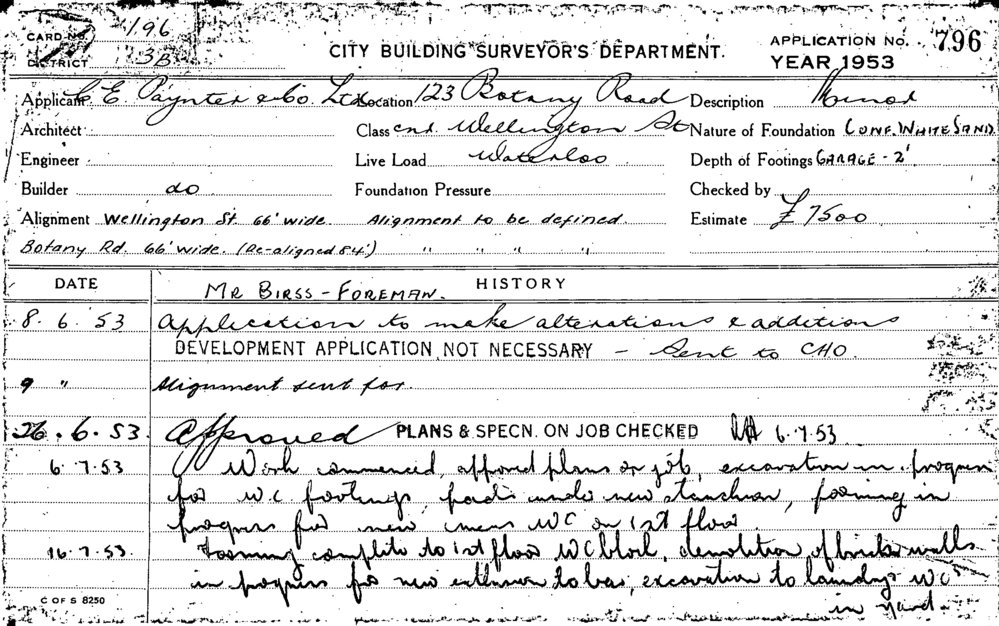 CARD No. 196
DISTRICT 3B
CITY BUILDING SURVEYOR'S DEPARTMENT.
APPLICATION No. 796
YEAR 1953
Applicant C E Paynter & Co. Ltd Location 123 Botany Road Description Minor
Architect Class cnr. Wellington St Nature of Foundation CONF. WHITE SAND
Engineer Live Load Waterloo Depth of Footings GARAGE - 2'
Builder do Foundation Pressure Checked by
Alignment Wellington St. 66' wide. Alignment to be defined Estimate £7500
Botany Rd. 66' wide. (Re-aligned 84') " " " "
DATE HISTORY
MR BIRSS - FOREMAN.
8. 6. 53 Application to make alterations & additions
DEVELOPMENT APPLICATION NOT NECESSARY - Sent to CHO.
9 " Alignment sent for.
26. 6. 53. Approved PLANS & SPECN. ON JOB CHECKED 6.7.53
6.7.53 Work commenced, approved plans on job, excavation in progress
for WC footings, pads under new stanchion, forming in
progress for new mens WC on 1st floor.
16.7.53. Forming complete to 1st floor WC block, demolition of brick walls
in progress for new extension to bar, excavation to laundry & WC
in yard.
C OF S 8250